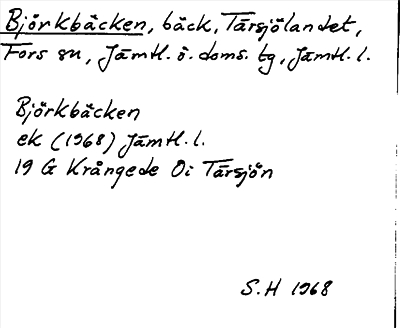 Björkbäcken, bäck, Tärsjölandet,
Fors sn, Jämtl. ö. doms. tg, Jämtl. l.
Björkbäcken
ek (1968) Jämtl. l.
19 G Krångede Oi Tärsjön
S.H 1968